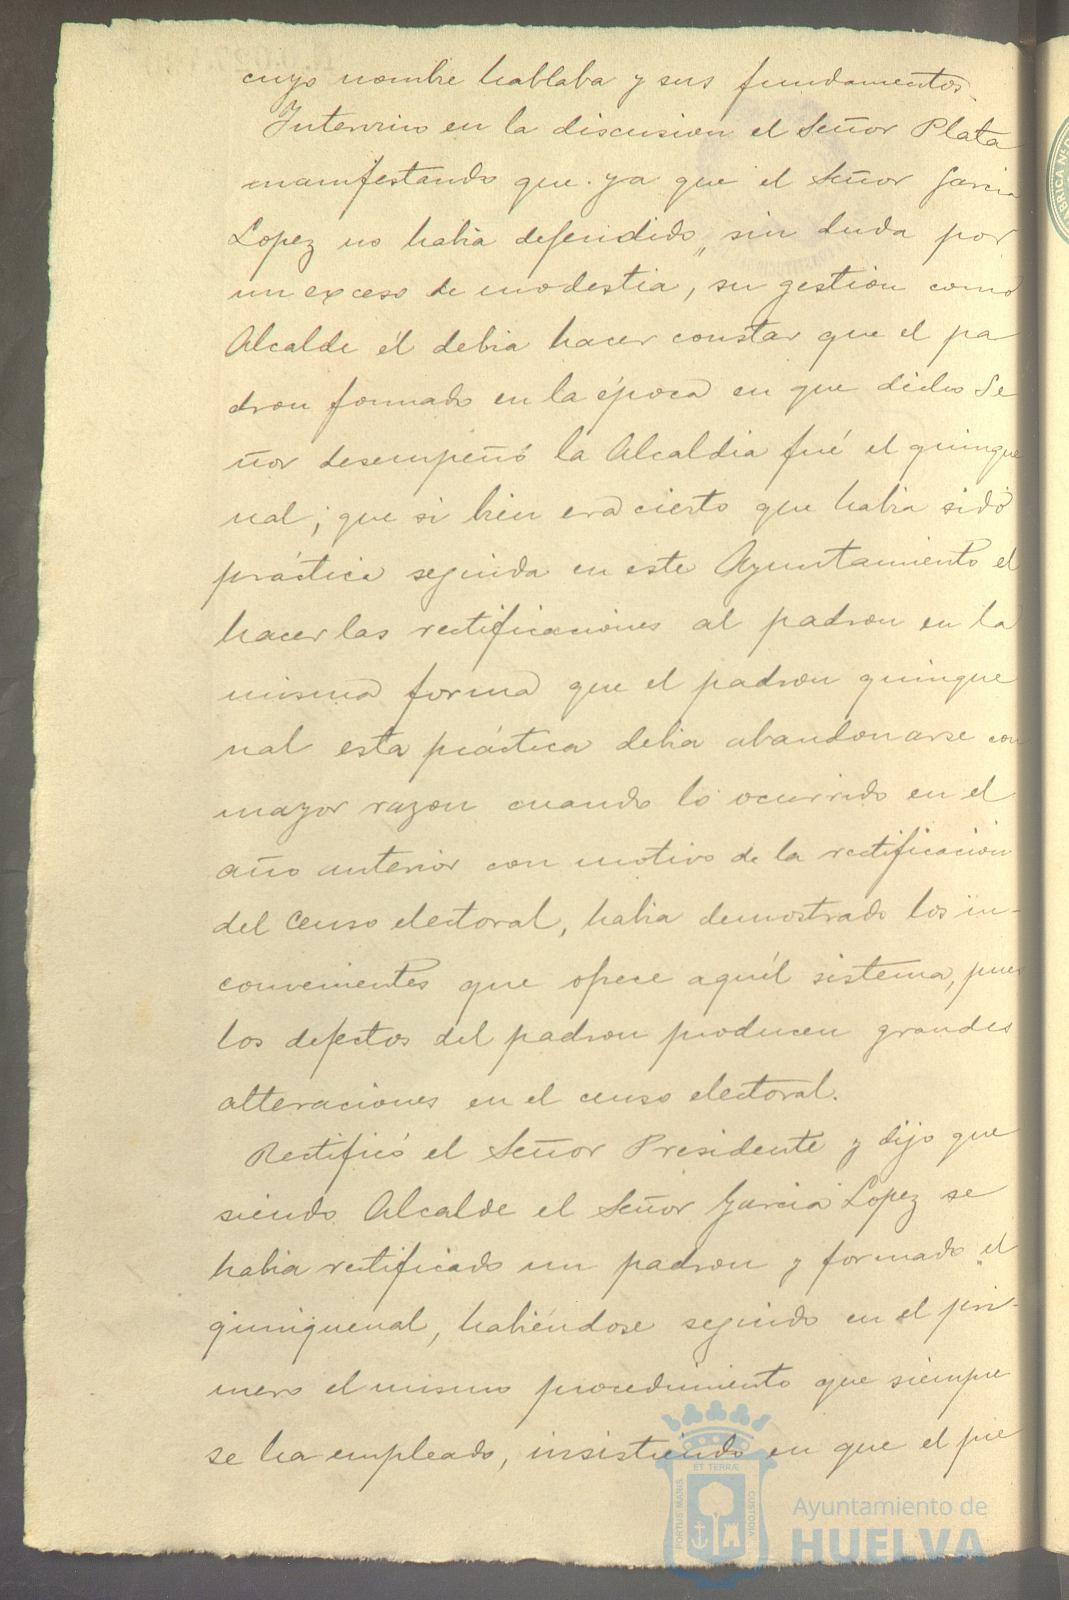 cuyo nombre hablaba y sus fundamentos.
Intervino en la discusion el Señor Plata
manifestando que ya que el Señor Garcia
Lopez no habia defendido, sin duda por
un exceso de modestia, su gestion como
Alcalde él debia hacer constar que el pa
dron formado en la época en que dicho Se
ñor desempeñó la Alcaldia fué el quinque
nal; que si bien era cierto que habia sido
práctica seguida en este Ayuntamiento el
hacer las rectificaciones al padron en la
misma forma que el padron quinque
nal esta práctica debia abandonarse con
mayor razon cuando lo ocurrido en el
año anterior con motivo de la rectificacion
del censo electoral, habia demostrado los in-
convenientes que ofrece aquél sistema, pues
los defectos del padron producen grandes
alteraciones en el censo electoral.
Rectificó el Señor Presidente y dijo que
siendo Alcalde el Señor Garcia Lopez se
habia rectificado un padron y formado el
quinquenal, habiéndose seguido en el pri-
mero el mismo procedimiento que siempre
se ha empleado, insistiendo en que el pie
PORTUS MARIS
ET TERRÆ
CUSTODIA
Ayuntamiento de
HUELVA